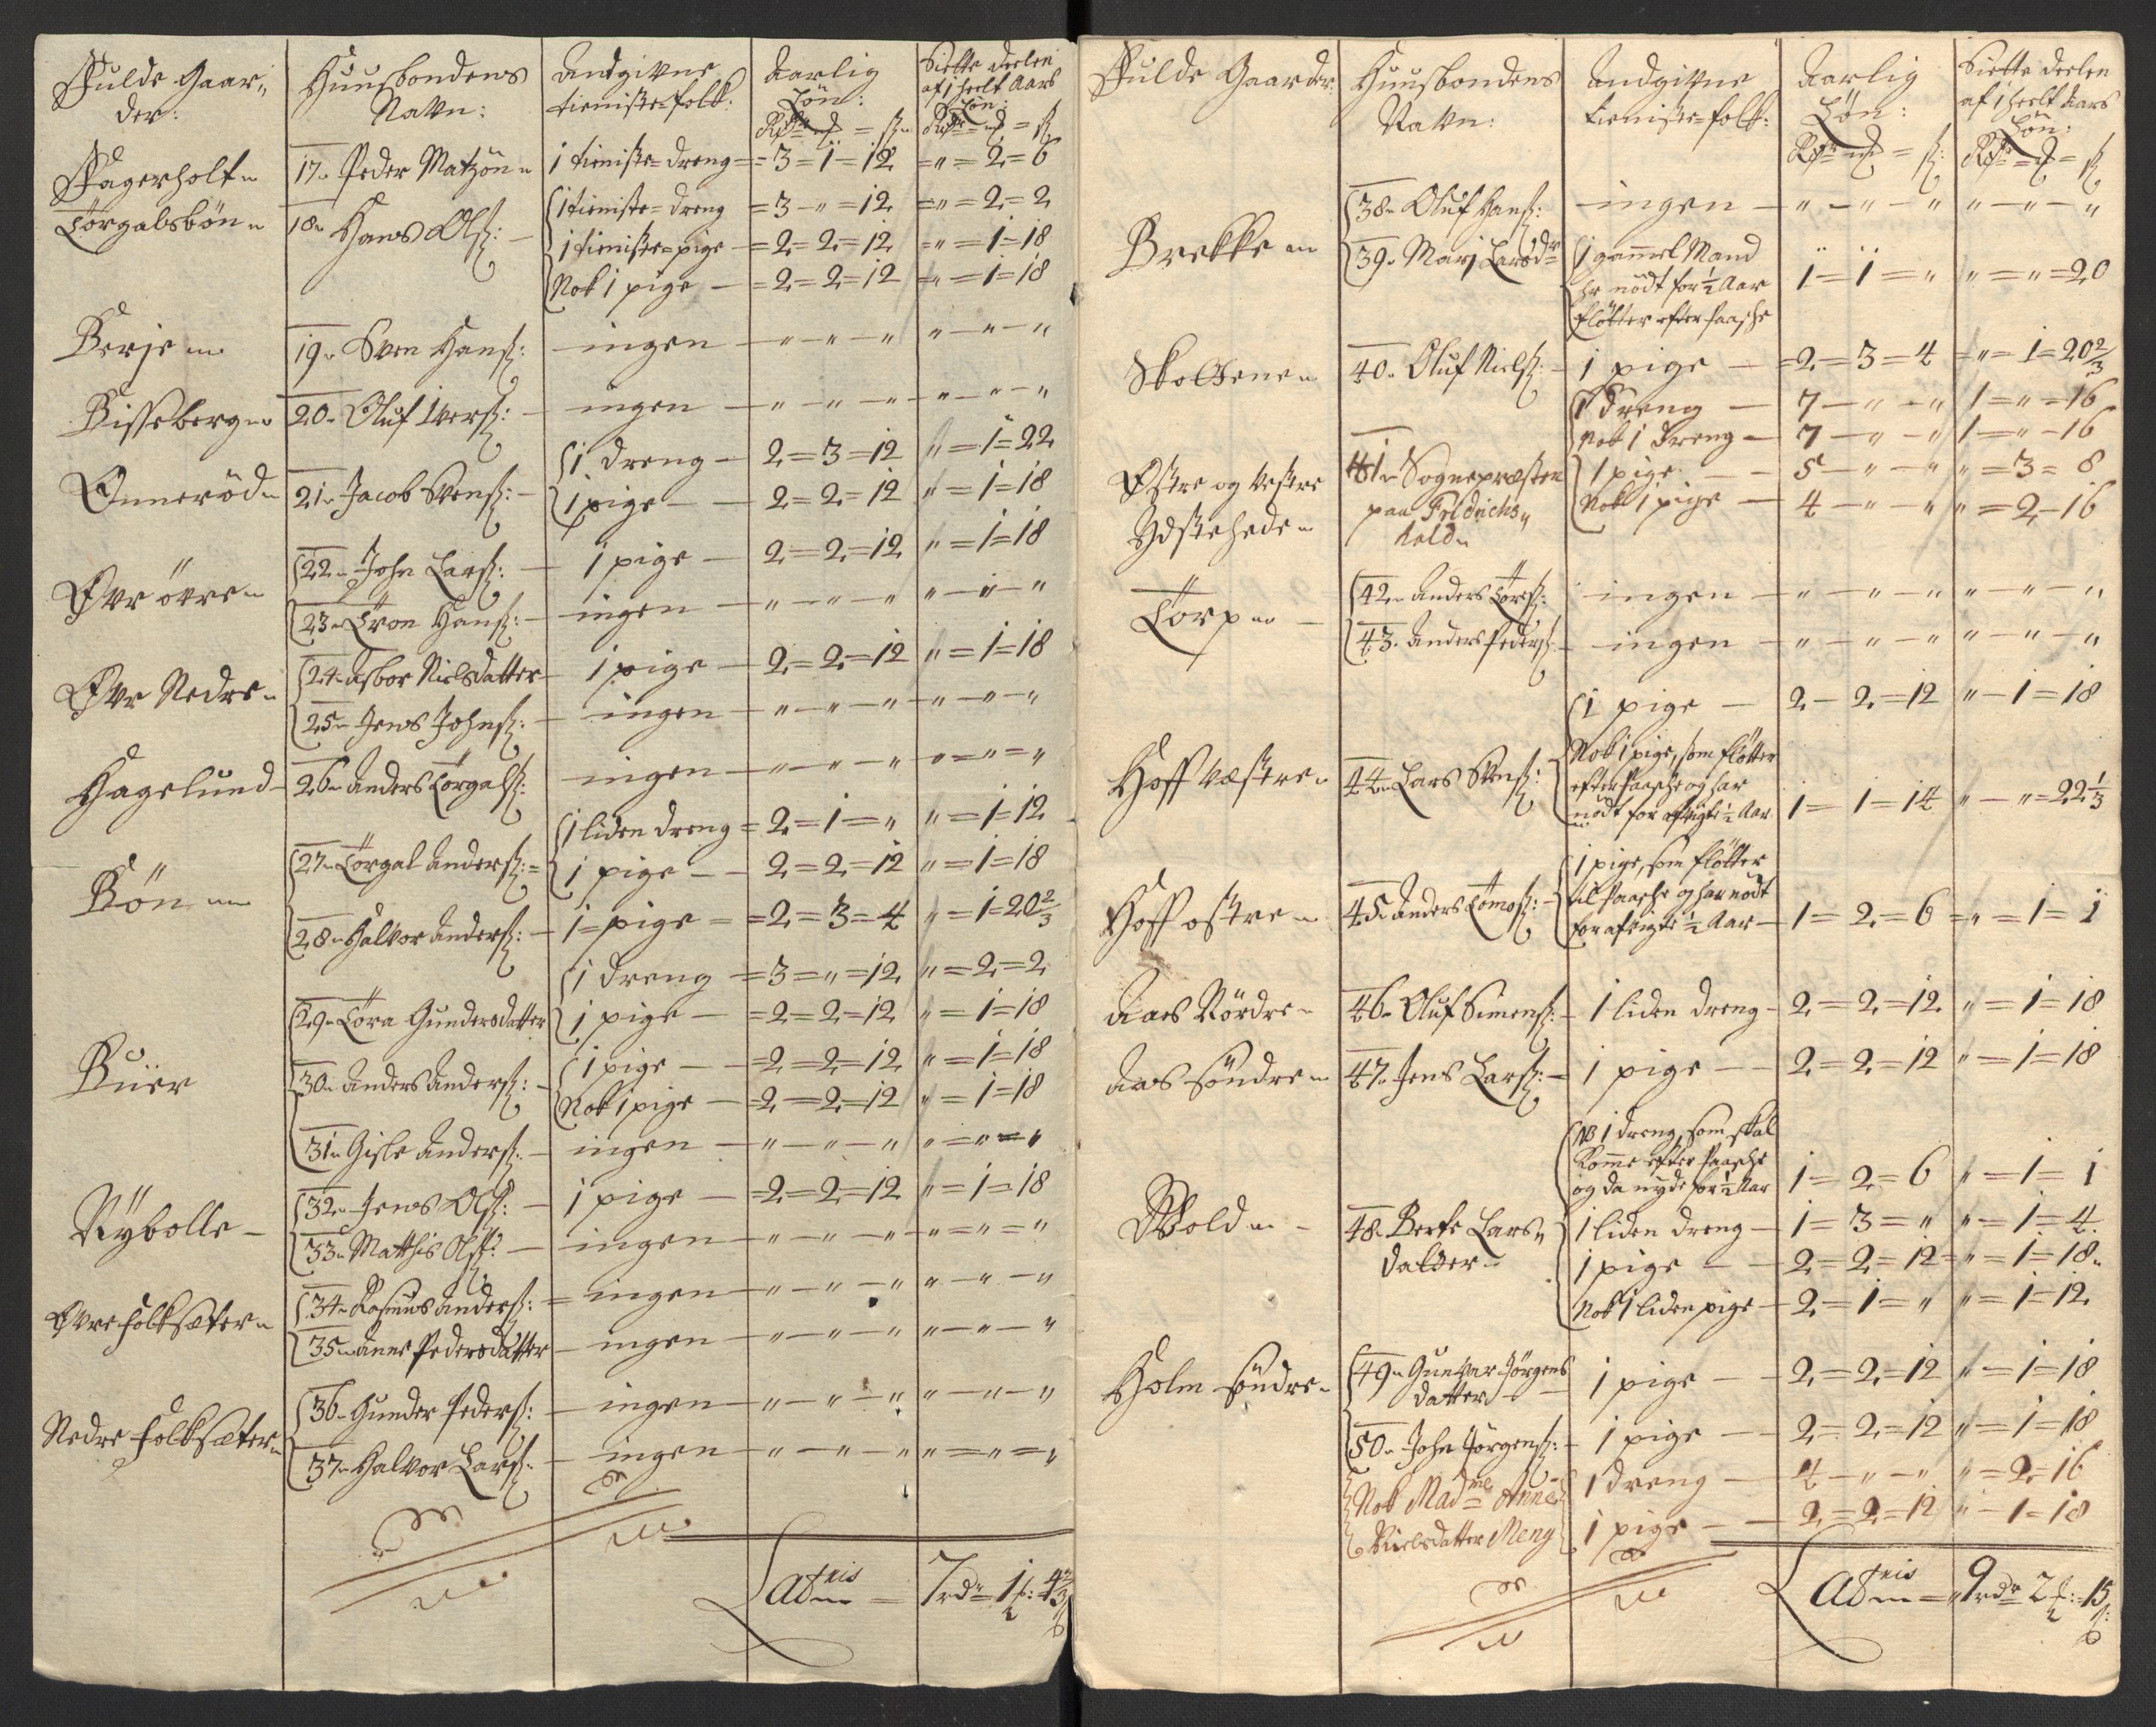 Fulde Gaar„ Huusbondens Andgivne Aarlig Siette deelen
der: Navn: tieniste-folk: Løn: af 1 heelt Aars Løn:
Rdr = ß Rdr = ß
Fagerholt 17. Peder Matzøn 1 tieniste-dreng = 3 = 1 = 12 = „ = 2 = 6
Törgalsbøn 18. Hans Olß: 1 tieniste-dreng = 3 - „ = 12 = „ = 2 = 2
1 tieniste-pige = 2 = 2 = 12 = „ = 1 = 18
Nok 1 pige = 2 = 2 = 12 = „ = 1 = 18
Berje 19. Sven Hanß: ingen „ „ „ „ „ „
Bisseberg 20. Oluf Iverß: ingen „ „ „ „ „ „
Onnerød 21. Jacob Svenß: 1 dreng 2 = 3 = 12 „ = 1 = 22
1 pige 2 = 2 = 12 „ = 1 = 18
Ør øvre 22. John Larß: 1 pige 2 = 2 = 12 „ = 1 = 18
23. Tron Hanß: ingen „ „ „ „ „ „
Ør Nedre 24. Asbor Nielsdatter 1 pige 2 = 2 = 12 „ = 1 = 18
25. Jens Johnß: ingen „ „ „ „ „ „
Hagelund 26. Anders Törgalß: ingen „ „ „ „ „ „
1 liden dreng = 2 = 1 = „ „ = 1 = 12
Bøn 27. Törgal Anderß: 1 pige 2 = 2 = 12 „ = 1 = 18
28. Halvor Anderß: 1 pige = 2 = 3 = 4 „ = 1 = 20 2/3
1 dreng = 3 = „ = 12 „ = 2 = 2
29. Tora Gundersdatter 1 pige = 2 = 2 = 12 „ = 1 = 18
Buer 30. Anders Anderß: 1 pige = 2 = 2 = 12 „ = 1 = 18
Nok 1 pige = 2 = 2 = 12 „ = 1 = 18
31. Gisle Anderß: ingen „ „ „ „ „ „
Nÿbolle 32. Jens Olß: 1 pige = 2 = 2 = 12 „ = 1 = 18
33. Matthis Olß: ingen „ „ „ „ „ „
Øvre folksæter 34. Rasmus Anderß: ingen „ „ „ „ „ „
35. Anne Pedersdatter ingen „ „ „ „ „ „
Nedre folksæter 36. Gunder Pederß: ingen „ „ „ „ „ „
37. Halvor Larß: ingen „ „ „ „ „ „
Lateris = 7 rdr 1 4 2/3 ß
Fulde Gaarder: Huusbondens Andgivne Aarlig Siette deelen
Navn: tieniste-folk: Løn: af 1 heelt Aars Løn:
Rdr = ß: Rdr = ß
38. Oluf Hanß: ingen „ „ „ „ „ „
Brekke 39. Mari Larsdr 1 gammel Mand
hr nödt for ½ Aar 1 = 1 = „ „ = „ = 20
fløtter efter Paasche
Skottene 40. Oluf Nielß: 1 pige = 2 = 3 = 4 = „ = 1 = 20 2/3
1 dreng 7 „ „ 1 = „ = 16
Nok 1 dreng 7 „ „ 1 = „ - 16
Østre og Vestre 41. Sognepræsten 1 pige 5 „ „ „ = 3 = 8
Ydstehede paa Fridrichs„ Nok 1 pige 4 „ „ „ = 2 - 16
hald
Torp 42. Anders Torß: ingen „ „ „ „ „ „
43. Anders Pederß: ingen „ „ „ „ „ „
1 pige 2 - 2 = 12 „ - 1 = 18
Hoff væstre 44. Lars Svenß: Nok 1 pige, som fløtter
efter Paasche og har
nödt for afvigte ½ Aar 1 = 1 = 14 „ „ = 22 1/3
Hoff østre 45. Anders Tomoß: 1 pige, som fløtter
til Paasche og har nödt
for afvigte ½ Aar 1 = 2 = 6 = „ = 1 = 1
Aaes Nördre 46. Oluf Simenß: 1 liden dreng 2 = 2 = 12 „ = 1 = 18
Aas söndre 47. Jens Larß: 1 pige 2 = 2 = 12 „ = 1 = 18
NB 1 dreng, som skal
komme efter Paasche
og da nyde for ½ Aar 1 = 2 = 6 „ = 1 = 1
Wold 48. Berte Lars„ 1 liden dreng 1 = 3 = „ „ = 1 = 4
datter 1 pige 2 = 2 = 12 „ = 1 = 18
Nok 1 liden pige 2 = 1 = „ „ = 1 = 12
Holm söndre 49. Gunvor Jörgens 1 pige 2 = 2 = 12 „ = 1 = 18
datter
50. John Jörgenß: 1 pige 2 = 2 = 12 „ = 1 = 18
Nok Madme Anne 1 dreng 4 „ „ „ = 2 = 16
Nielsdatter Meng 1 pige 2 = 2 = 12 „ - 1 = 18
Lateris = 9 rdr 2 : 15 ß: